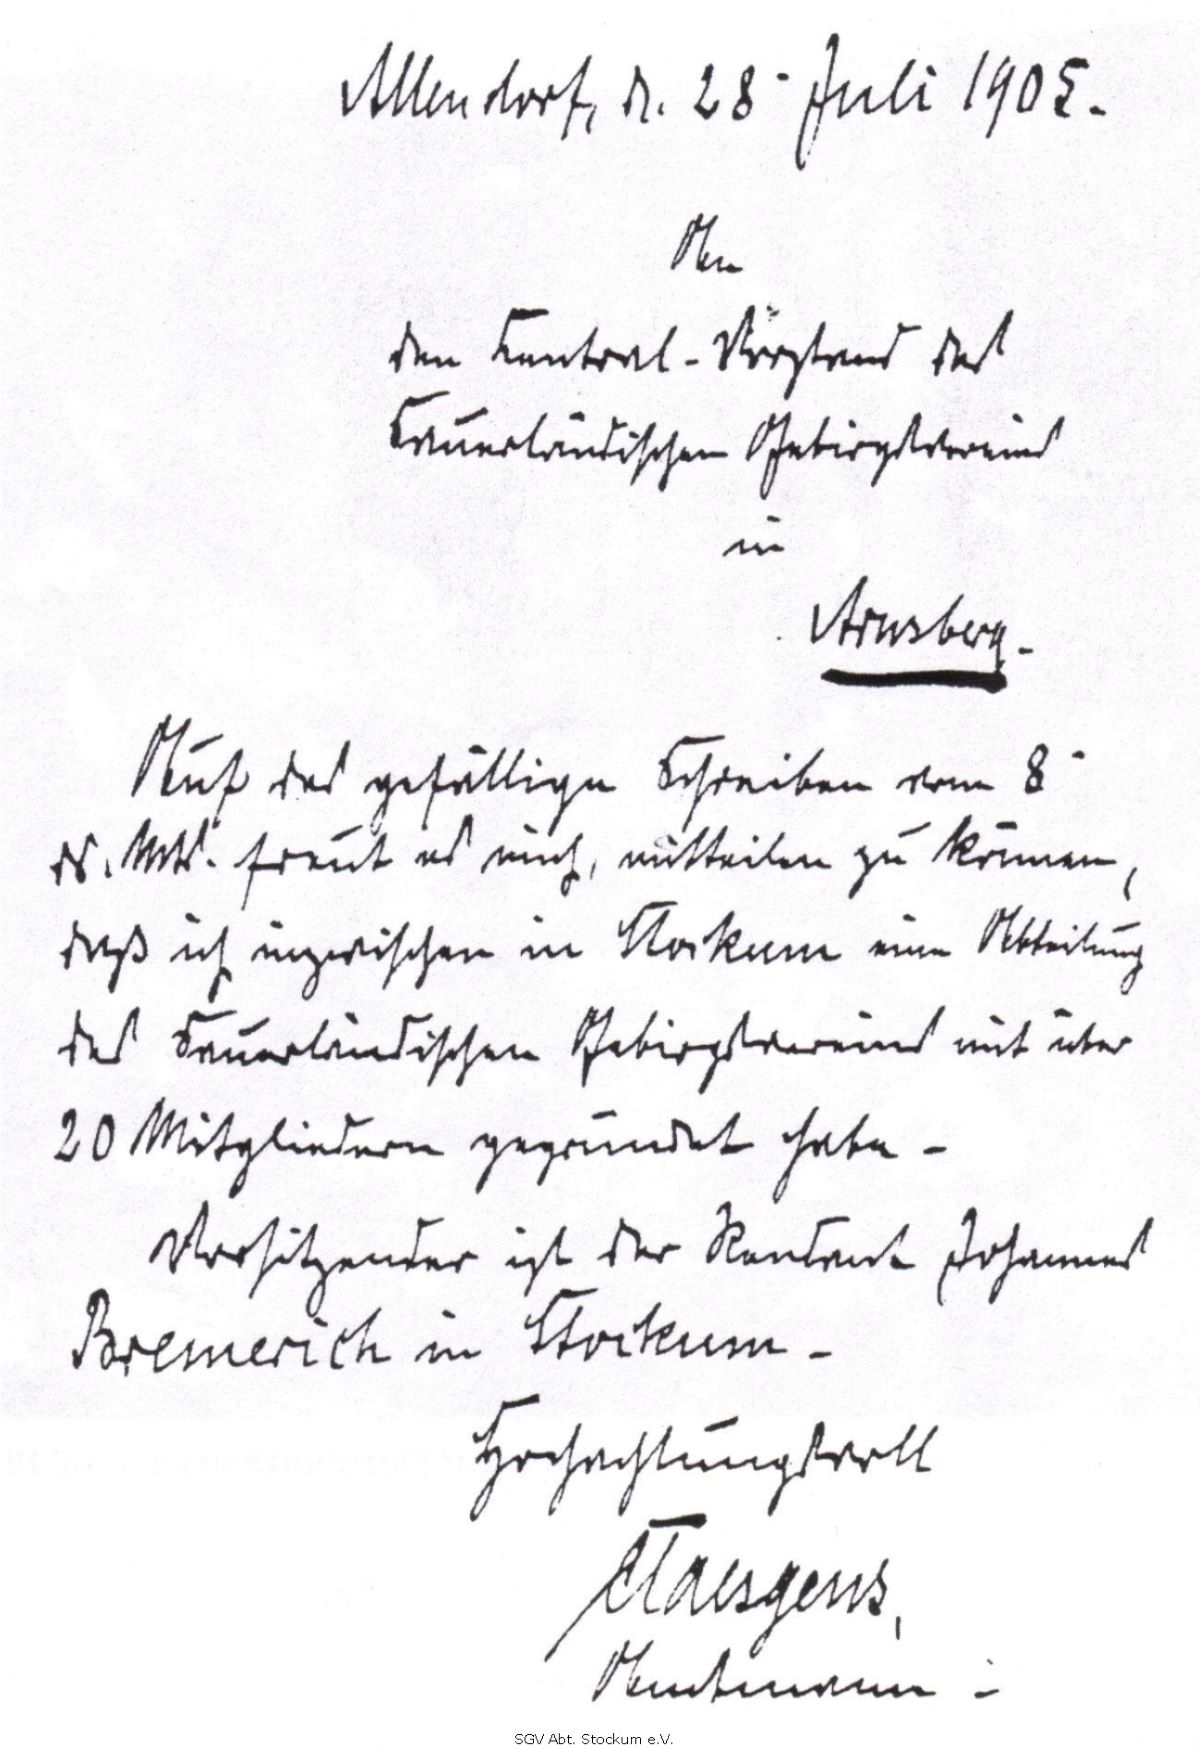 Allendorf, d. 28 Juli 1905.
An
den Central-Vorstand des
Sauerländischen Gebirgsvereins
in
Arnsberg.
Auf das gefällige Schreiben vom 8
ds. Mts. freut es mich, mitteilen zu können,
daß ich inzwischen in Stockum eine Abteilung
des Sauerländischen Gebirgsvereins mit über
20 Mitgliedern gegründet habe.
Vorsitzender ist der Rendant Johannes
Bremerich in Stockum.
Hochachtungsvoll
Amtmann.
SGV Abt. Stockum e.V.